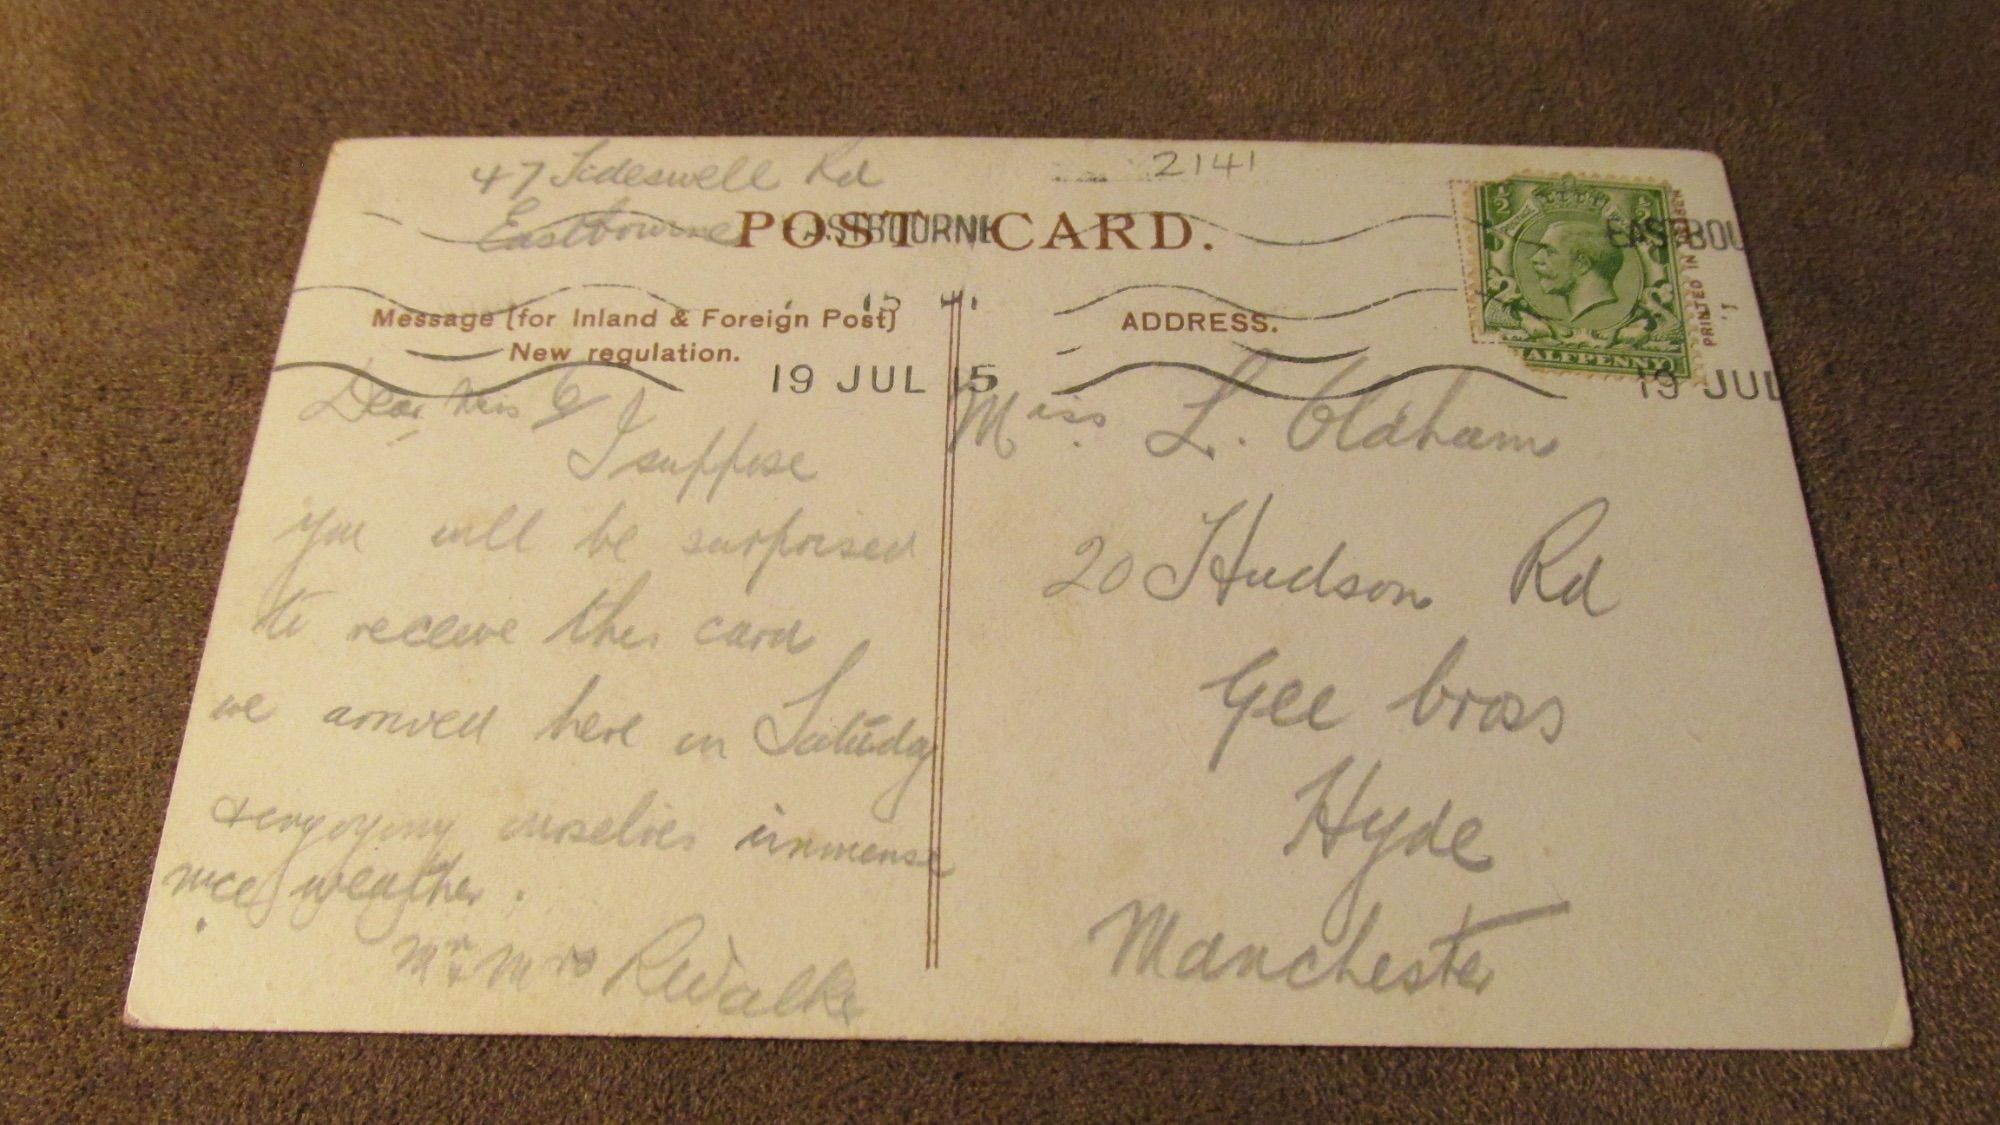 47 Tideswell Rd
Eastbourne
2141
POST CARD.
EASTBOURNE
EASTBOU
Message (for Inland & Foreign Post)
New regulation.
ADDRESS.
½ ½
ALFPENNY
PRINTED IN
19 JUL 15
19 JUL
Dear Miss O
I suppose
you will be surprised
to receive this card
we arrived here on Saturday
& enjoying ourselves immense
nice weather.
Mr & Mrs R Walker
Miss L. Oldham
20 Hudson Rd
Gee Cross
Hyde
Manchester